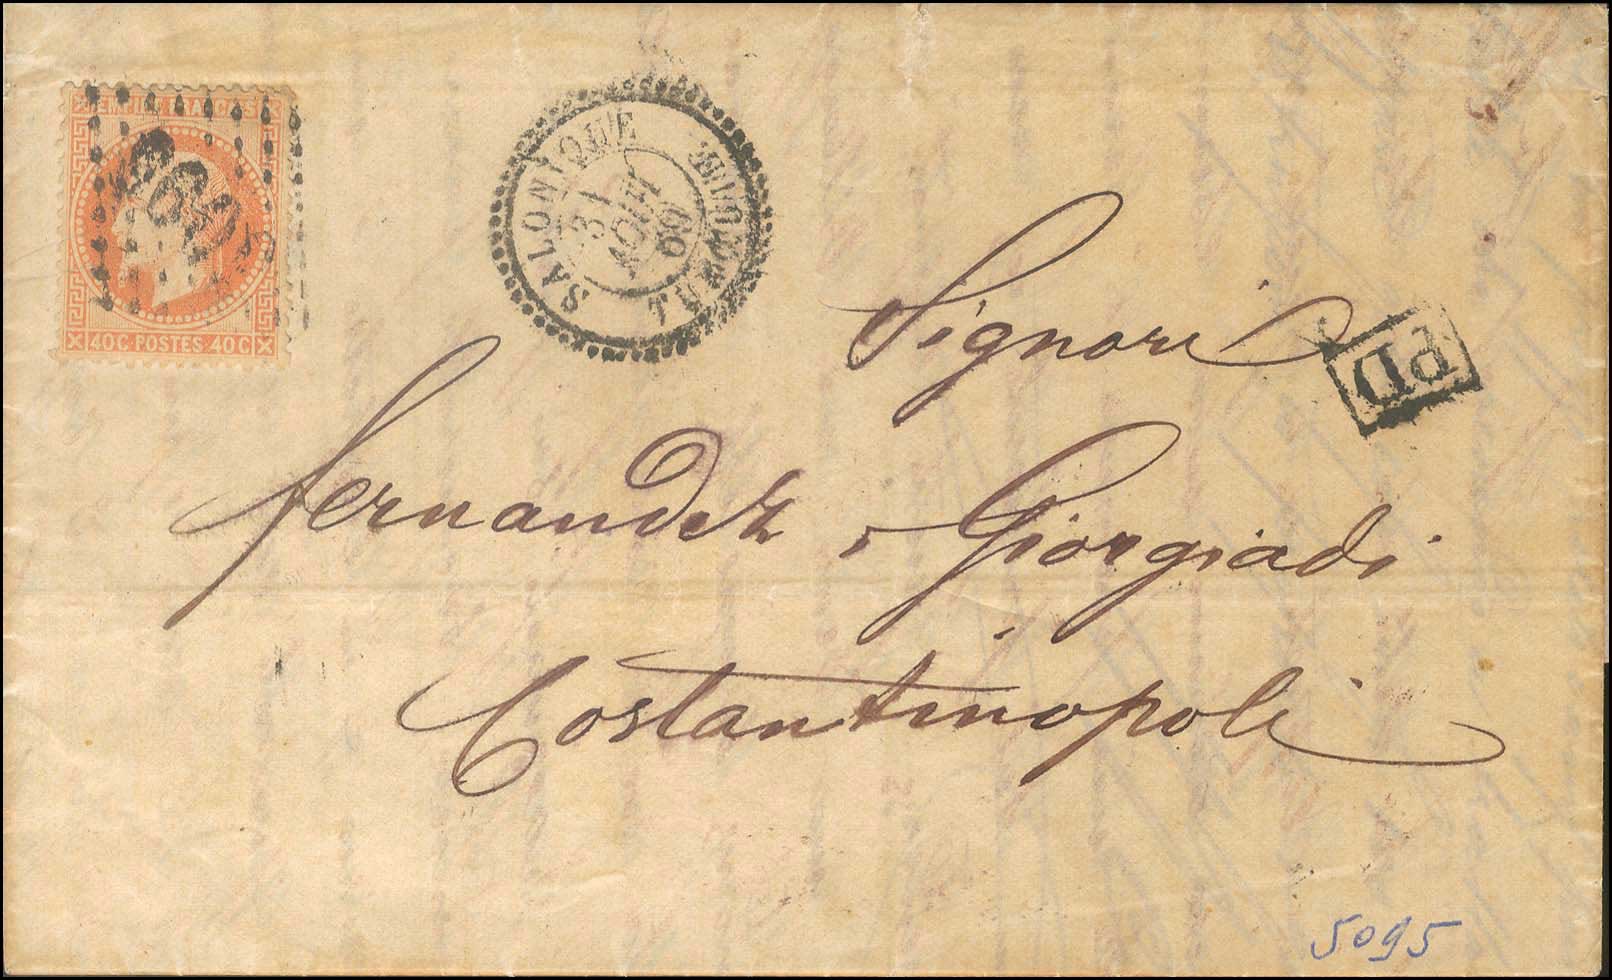 EMPIRE FRANÇAIS
40C POSTES 40C
SALONIQUE
TURQ. D'EUR.
31
AOUT
69
PD
Signori
Fernandez, Giorgiadi
Costantinopoli
5095